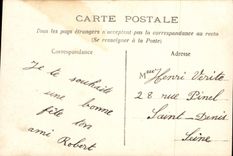 CARTE POSTALE
Tous les pays étrangers n'acceptent pas la correspondance au recto
(Se renseigner à la Poste)
Correspondance
Adresse
Je te souhaite
une bonne
fête ton
ami Robert
Mme Henri Verité
28 rue Pinel
Saint-Denis
Seine